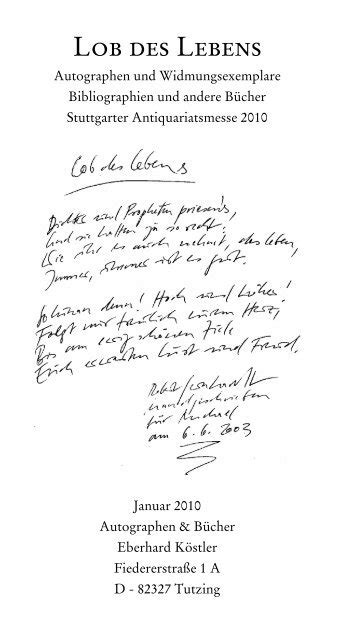 LOB DES LEBENS
Autographen und Widmungsexemplare
Bibliographien und andere Bücher
Stuttgarter Antiquariatsmesse 2010
Lob des Lebens
Dichter und Propheten priesens,
Und sie hatten ja so recht:
Wie ihr es auch nehmt, das Leben,
Immer, immer ist es
So kommen denn! Hoch und höher!
Folgt mir treulich eurem Herz,
Bis am schönen Ziele
Euch erwarten Lust und Freud.
Robert Gernhardt
für Michael
am 6.6.2003
Januar 2010
Autographen & Bücher
Eberhard Köstler
Fiedererstraße 1 A
D - 82327 Tutzing